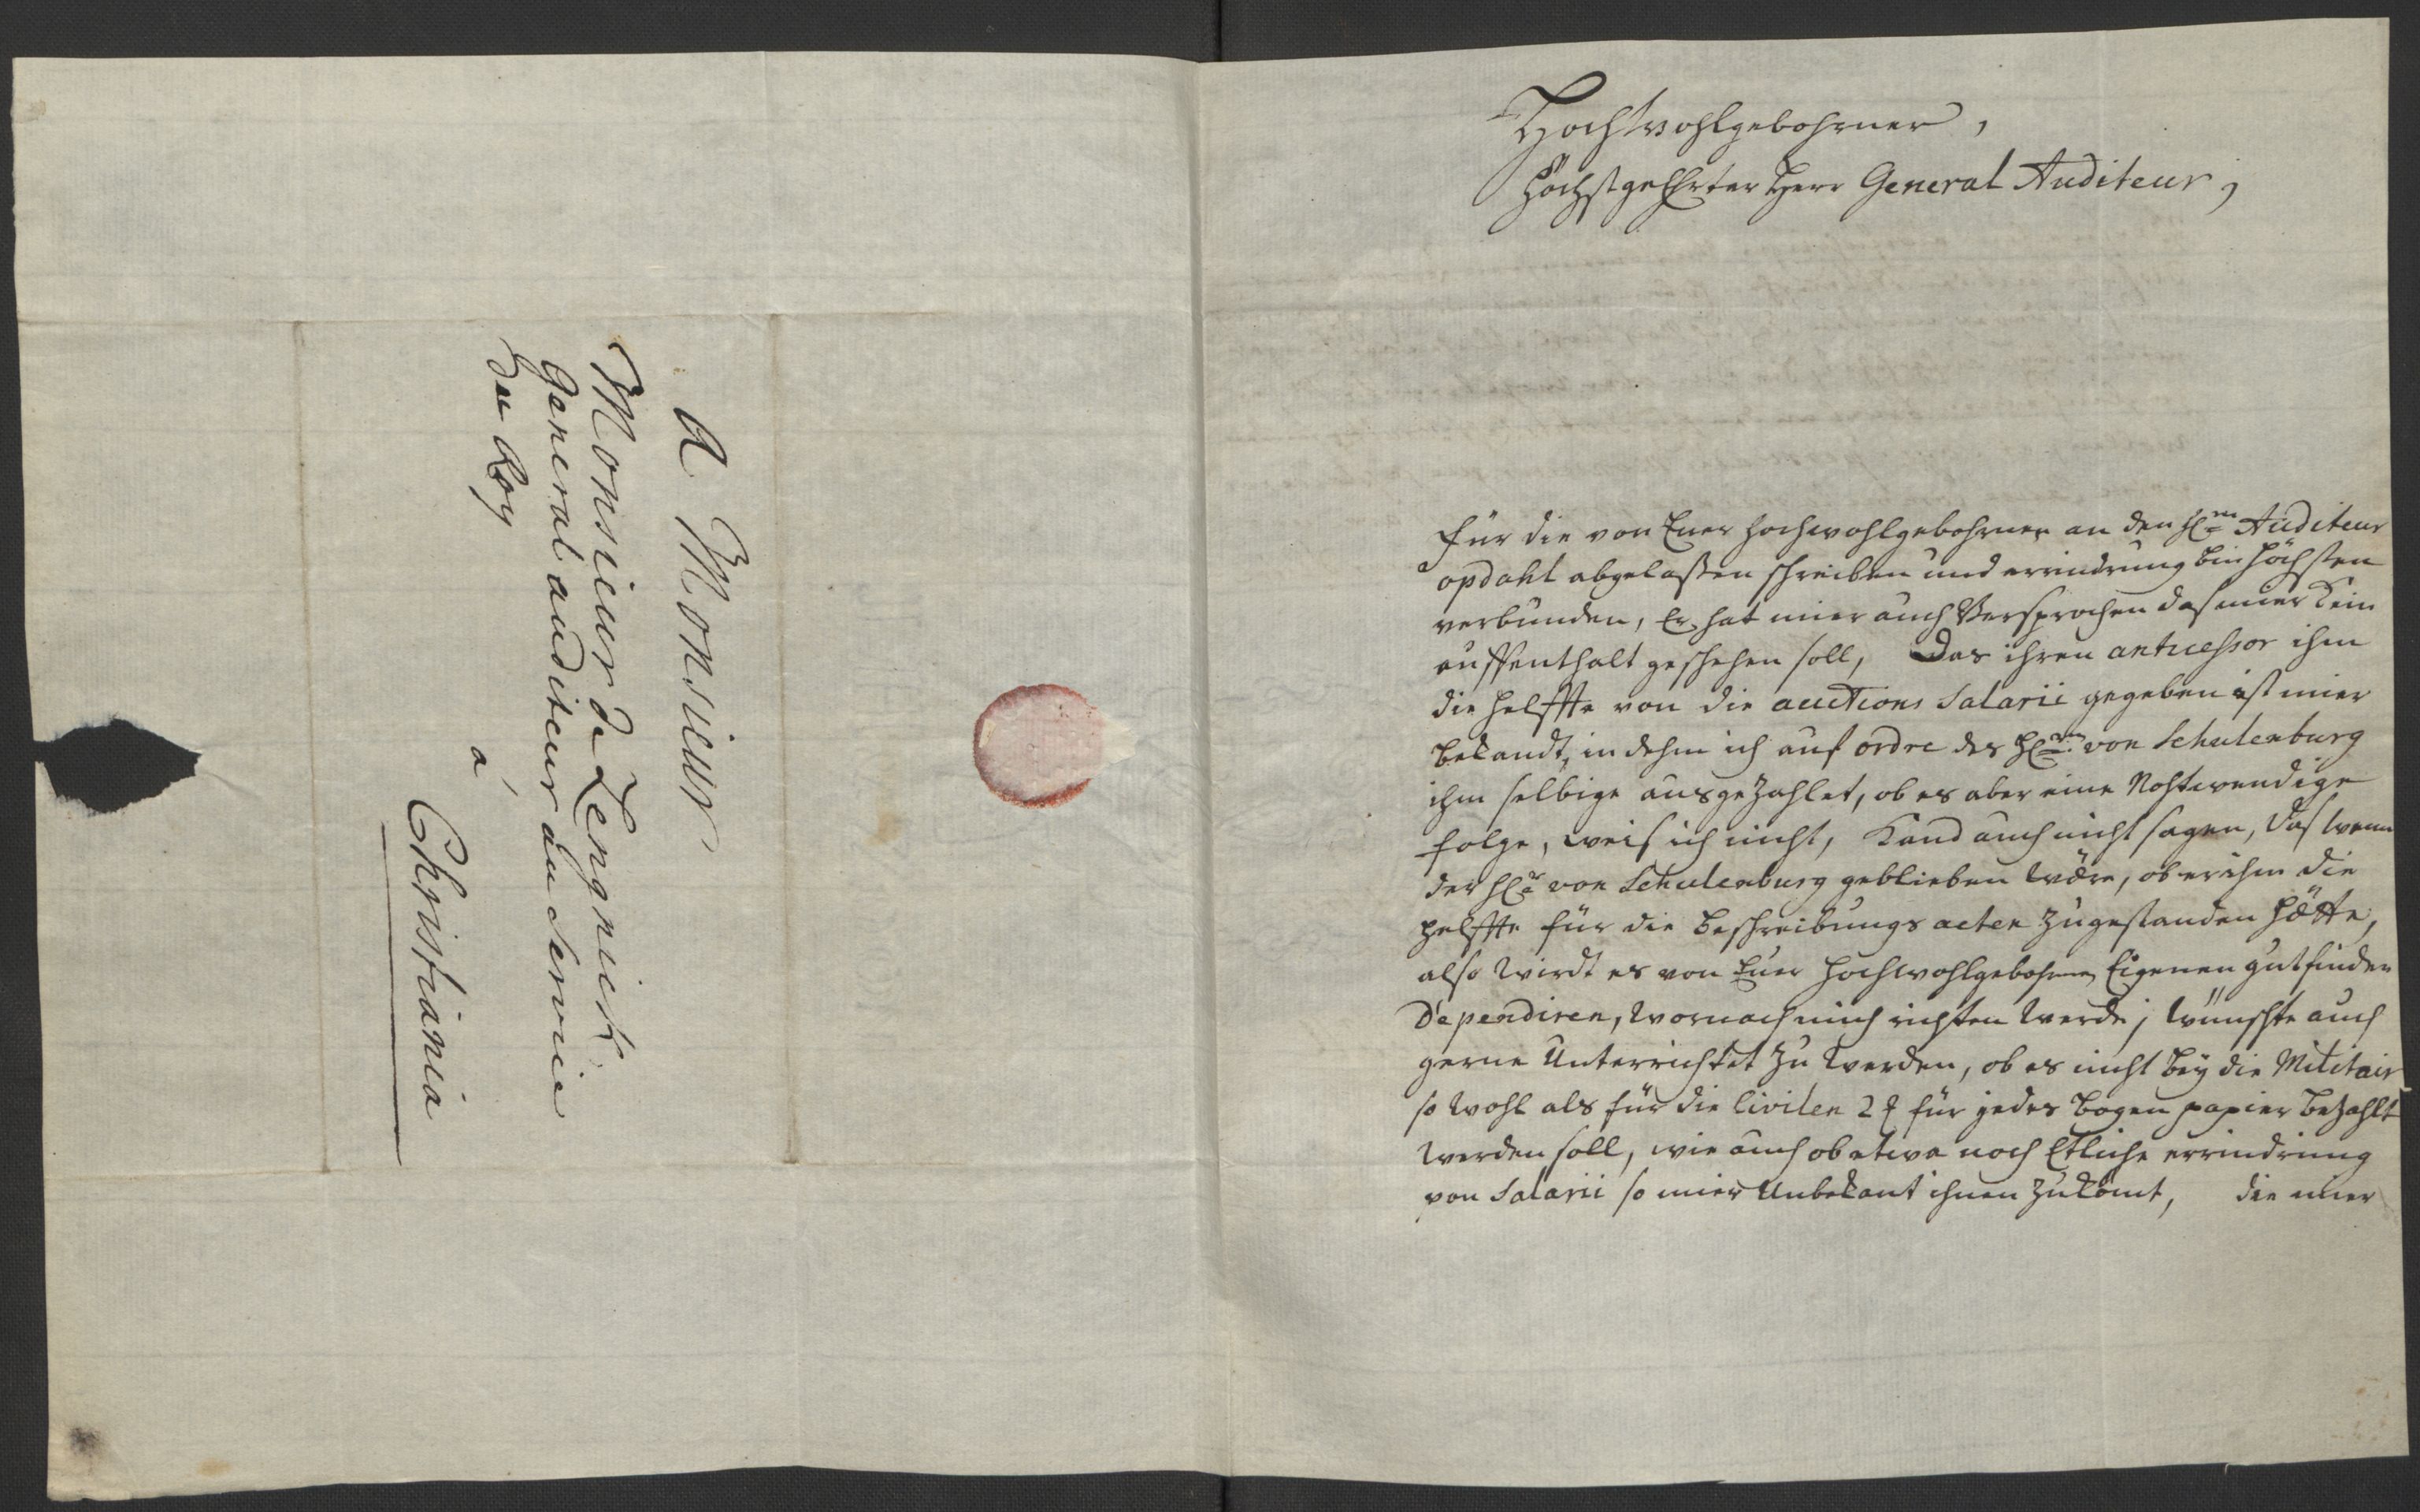 A Monsieur
Monsieur de Lengnick
General auditeur au Service
du Roy
a
Christiania
Hochwohlgebohrner,
Höchstgeehrter Herr General Auditeur,
für die von Euer Hochwohlgebohrnen an den H:rn Auditeur
opdahl abgelaßen schreiben und errindrung bin höchsten
verbunden, Er hat mier auch Versprochen das mier kein
auffenthalt geschehen soll, Das ihren antecessor ihm
die helffte von die auctions Salarii gegeben ist mier
bekandt, in dehm ich auf ordre des H:rn von Schulenburg
ihm selbige ausgezahlet, ob es aber eine Nohtwendige
folge, weis ich nicht, kand auch nicht sagen, das wenn
der H:r von Schulenburg geblieben wäre, ob er ihm die
helffte für die beschreibungs acten zugestanden hätte,
also wirdt es von Euer Hochwohlgebohrnen Eigenen gutfinden
Dependiren, wornach mich richten werde; wünschte auch
gerne Unterrichtet zu werden, ob es nicht beÿ die Militair
so wohl als für die Civilen 2 ß für jedes bogen papier bezahlt
werden soll, wie auch ob etwa noch Etliche errindrung
von Salarii so mier Unbekant ihnen zukömt, die mier